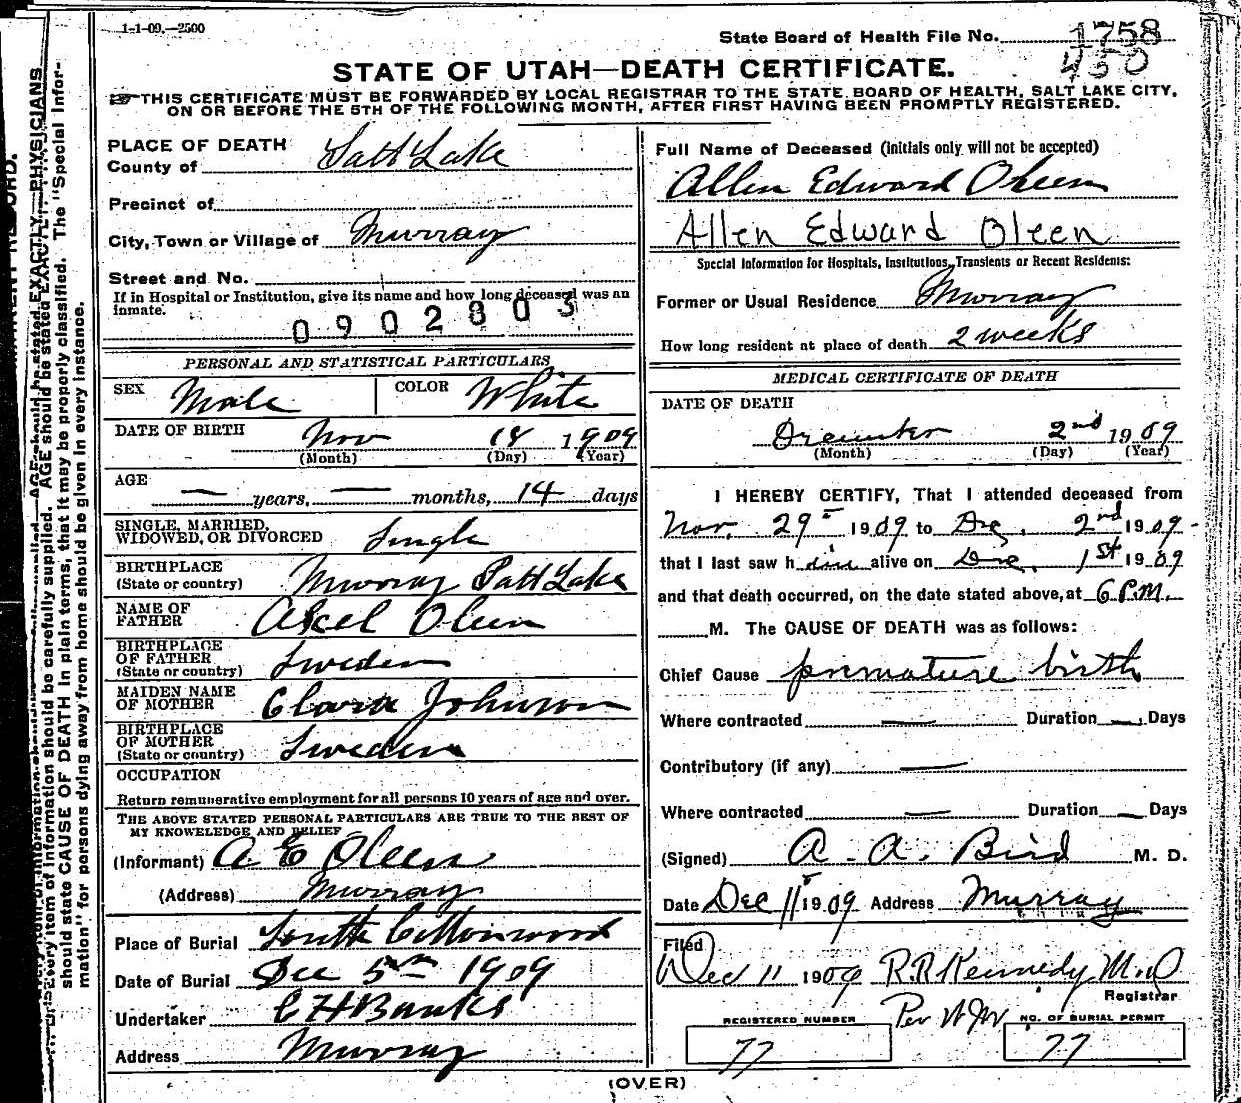 1-1-09.—2500
State Board of Health File No. 1758
450
STATE OF UTAH—DEATH CERTIFICATE.
THIS CERTIFICATE MUST BE FORWARDED BY LOCAL REGISTRAR TO THE STATE BOARD OF HEALTH, SALT LAKE CITY,
ON OR BEFORE THE 5TH OF THE FOLLOWING MONTH, AFTER FIRST HAVING BEEN PROMPTLY REGISTERED.
PLACE OF DEATH
County of Salt Lake
Precinct of
City, Town or Village of Murray
Street and No.
If in Hospital or Institution, give its name and how long deceased was an
inmate.
0902803
PERSONAL AND STATISTICAL PARTICULARS
SEX Male COLOR White
DATE OF BIRTH Nov 18 1909
(Month) (Day) (Year)
AGE — years, — months, 14 days
SINGLE, MARRIED,
WIDOWED, OR DIVORCED Single
BIRTHPLACE
(State or country) Murray Salt Lake
NAME OF
FATHER Axel Oleen
BIRTHPLACE
OF FATHER
(State or country) Sweden
MAIDEN NAME
OF MOTHER Clara Johnson
BIRTHPLACE
OF MOTHER
(State or country) Sweden
OCCUPATION
Return remunerative employment for all persons 10 years of age and over.
THE ABOVE STATED PERSONAL PARTICULARS ARE TRUE TO THE BEST OF
MY KNOWELEDGE AND BELIEF
(Informant) A E Oleen
(Address) Murray
Place of Burial South Cottonwood
Date of Burial Dec 5th 1909
Undertaker C H Banks
Address Murray
Full Name of Deceased (initials only will not be accepted)
Allen Edward Oleen
Allen Edward Oleen
Special Information for Hospitals, Institutions, Transients or Recent Residents:
Former or Usual Residence Murray
How long resident at place of death 2 weeks
MEDICAL CERTIFICATE OF DEATH
DATE OF DEATH
December 2nd 1909
(Month) (Day) (Year)
I HEREBY CERTIFY, That I attended deceased from
Nov. 29 1909 to Dec. 2nd 1909
that I last saw h im alive on Dec. 1st 1909
and that death occurred, on the date stated above, at 6 P.M.
M. The CAUSE OF DEATH was as follows:
Chief Cause premature birth
Where contracted — Duration — Days
Contributory (if any) —
Where contracted — Duration — Days
(Signed) A. A. Bird M. D.
Date Dec 11 1909 Address Murray
Filed
Dec 11 1909 R.R Kennedy M.D
Registrar
Per
REGISTERED NUMBER NO. OF BURIAL PERMIT
77 77
(OVER)
should state CAUSE OF DEATH in plain terms, that it may be properly classified. The "Special Infor-
mation" for persons dying away from home should be given in every instance.
every item of information should be carefully supplied. AGE should be stated EXACTLY. PHYSICIANS